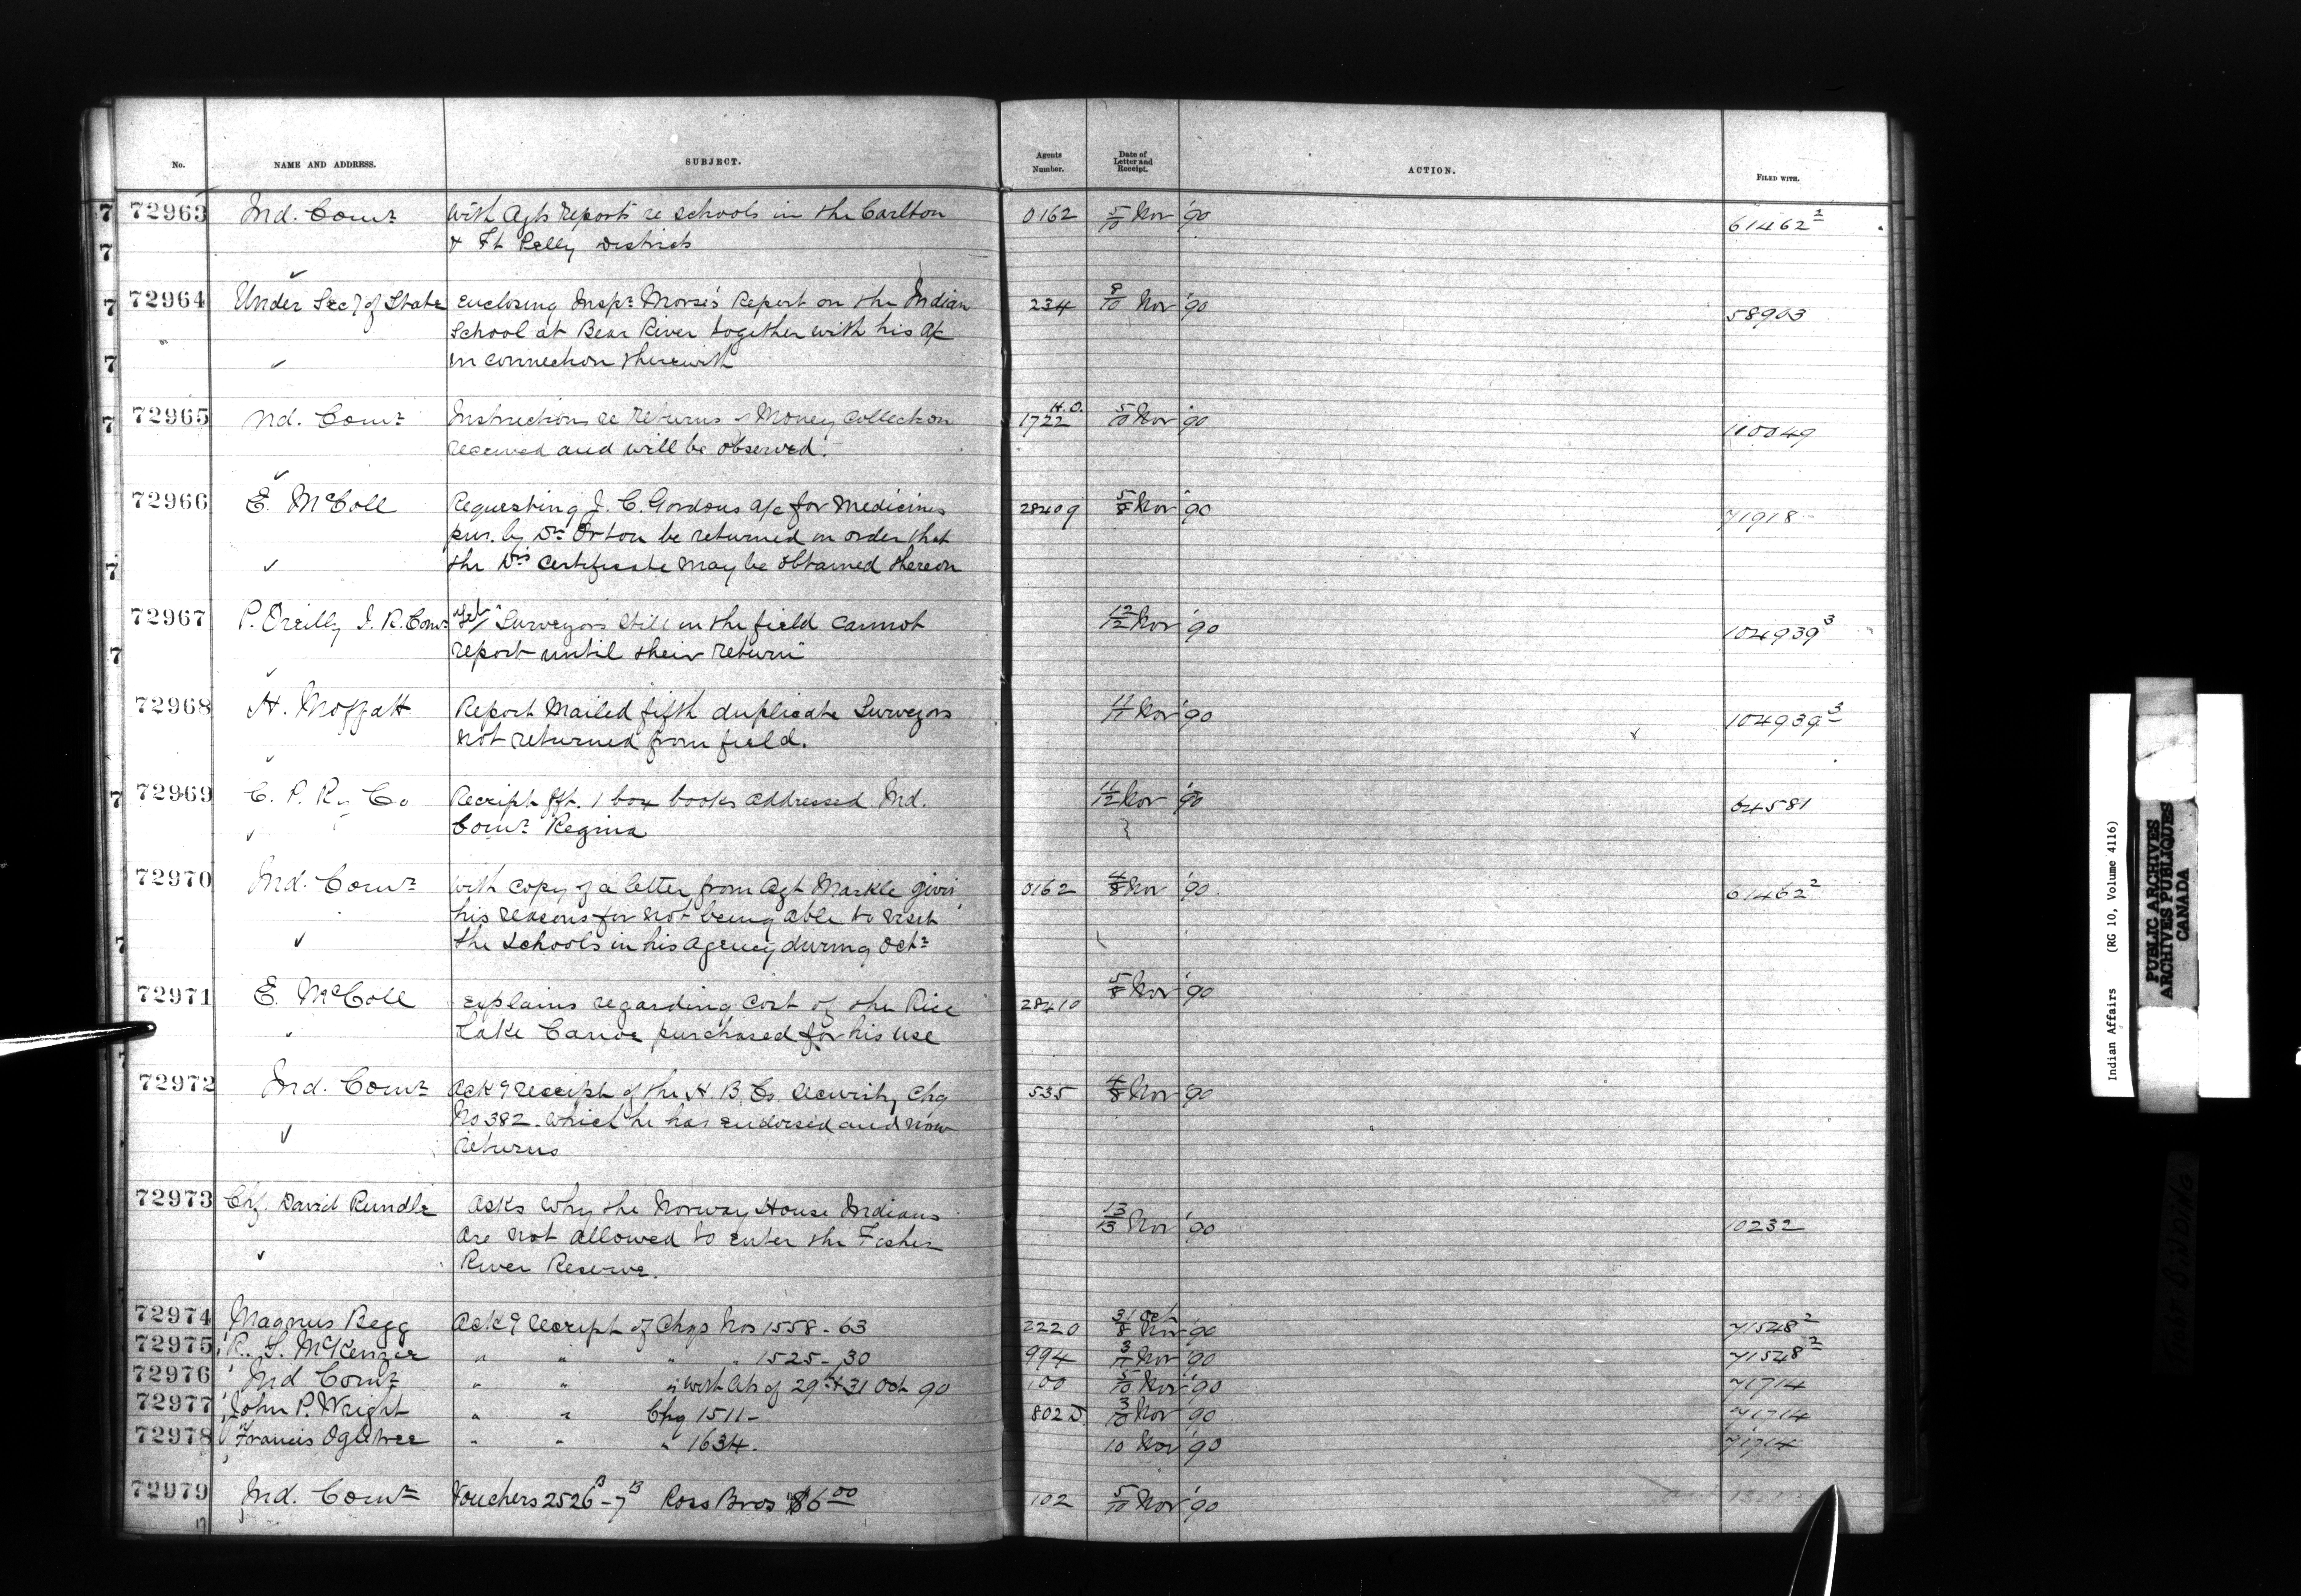 No. NAME AND ADDRESS. SUBJECT. Agents Number. Date of Letter and Receipt. ACTION. FILED WITH.
72963 Ind. Comr with Agts reports re schools in the Carlton 0162 5/10 Nov '90 61462 2
& Ft Pelly Districts
72964 Under Secy of State Enclosing Inspr Morse's Report on the Indian 234 8/10 Nov '90 58903
School at Bear River together with his a/c
in connection therewith
72965 Ind. Comr Instructions re returns of Money Collection H.O. 1722 5/10 Nov '90 110049
received and will be observed.
72966 E. McColl Requesting J. C. Gordons a/c for Medicines 28409 5/8 Nov '90 71918
pur. by Dr Orton be returned in order that
the Drs Certificate may be obtained thereon
72967 P. Oreilly I. R. Comr Tel. Surveyors still in the field cannot 12/12 Nov '90 104939 3
report until their return
72968 H. Moffatt Report Mailed fifth duplicate Surveyors 11/11 Nov '90 104939 3
not returned from field.
72969 C. P. Ry Co Receipt fft. 1 box books addressed Ind. 11/12 Nov '90 64581
Comr Regina
72970 Ind. Comr with copy of a letter from Agt Markle givin 0162 4/8 Nov '90. 61462 2
his reasons for not being able to visit
the schools in his Agency during Octr
72971 E. McColl Explains regarding Cost of the Rice 28410 5/8 Nov '90
Lake Canoe purchased for his use
72972 Ind. Comr Ackg receipt of the H. B. Co. security Chq 535 4/8 Nov '90
No 382. which he has endorsed and now
returns
72973 Chf. David Rundle Asks Why the Norway House Indians 13/13 Nov '90 10232
are not allowed to enter the Fisher
River Reserve.
72974 Magnus Begg Ackg receipt of Chqs Nos 1558-63 2220 31 Oct/8 Nov '90 71548 2
72975 R. S. McKenzie " " " " 1525-30 994 3/11 Nov '90 71548 2
72976 Ind Comr " " " with ats of 29th & 31 Oct 90 100 5/10 Nov '90 71714
72977 John P. Wright " " Chq 1511- 802 D. 3/10 Nov '90 71714
72978 Francis Ogletree " " " 1634. 10 Nov '90 71714
72979 Ind. Comr Vouchers 2526 B - 7 B Ross Bros $6 00 102 5/10 Nov '90
Indian Affairs (RG 10, Volume 4116)
PUBLIC ARCHIVES
ARCHIVES PUBLIQUES
CANADA